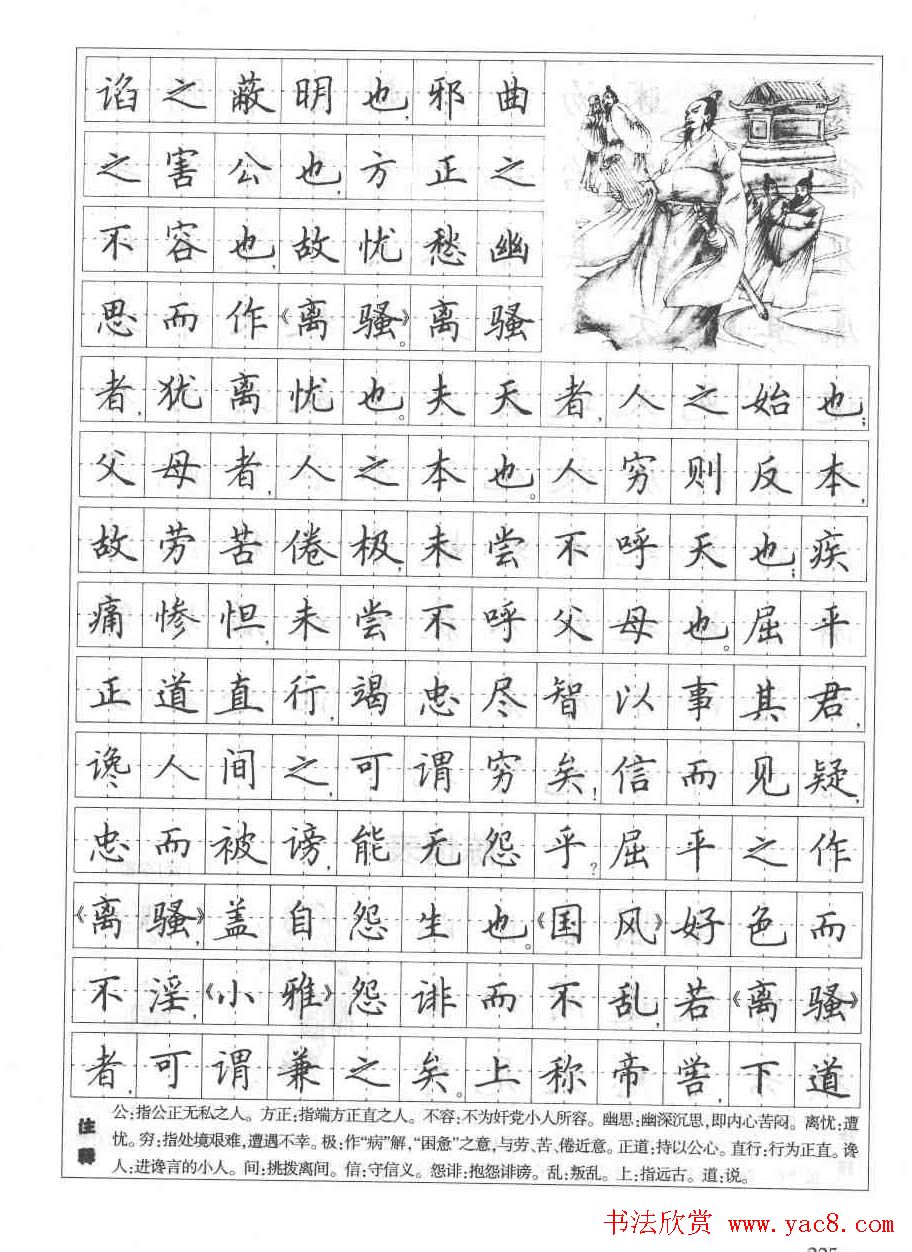 谄之蔽明也,邪曲
之害公也,方正之
不容也,故忧愁幽
思而作《离骚》。离骚
者,犹离忧也。夫天者,人之始也;
父母者,人之本也。人穷则反本,
故劳苦倦极,未尝不呼天也;疾
痛惨怛,未尝不呼父母也。屈平
正道直行,竭忠尽智以事其君,
谗人间之,可谓穷矣!信而见疑,
忠而被谤,能无怨乎?屈平之作
《离骚》,盖自怨生也。《国风》好色而
不淫,《小雅》怨诽而不乱,若《离骚》
者,可谓兼之矣。上称帝喾,下道
注释
公:指公正无私之人。方正:指端方正直之人。不容:不为奸党小人所容。幽思:幽深沉思,即内心苦闷。离忧:遭
忧。穷:指处境艰难,遭遇不幸。极:作“病”解,“困惫”之意,与劳、苦、倦近意。正道:持以公心。直行:行为正直。谗
人:进谗言的小人。间:挑拨离间。信:守信义。怨诽:抱怨诽谤。乱:叛乱。上:指远古。道:说。
书法欣赏 www.yac8.com